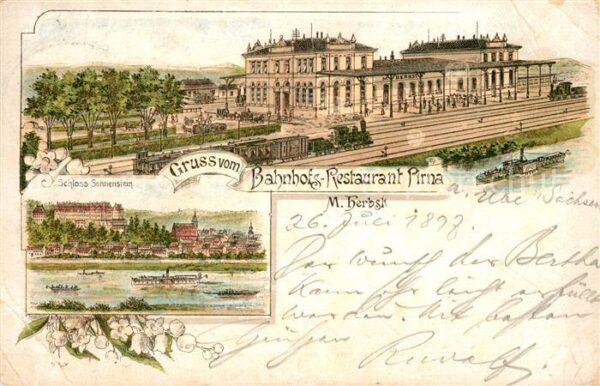 Gruss vom
Bahnhofs-Restaurant Pirna
M. Herbst
Schloss Sonnenstein
a. Elbe Sachsen
26. Juli 1897
Der Wunsch der Bertha
kann ja leicht erfüllt
werden. Mit besten
Grüssen Rudolf